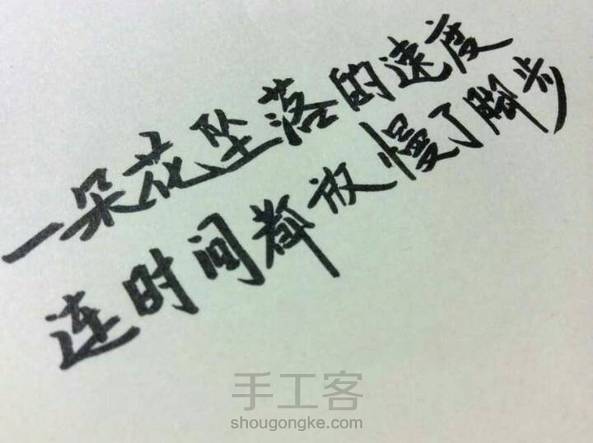 一朵花坠落的速度
连时间都放慢了脚步
手工客
shougongke.com